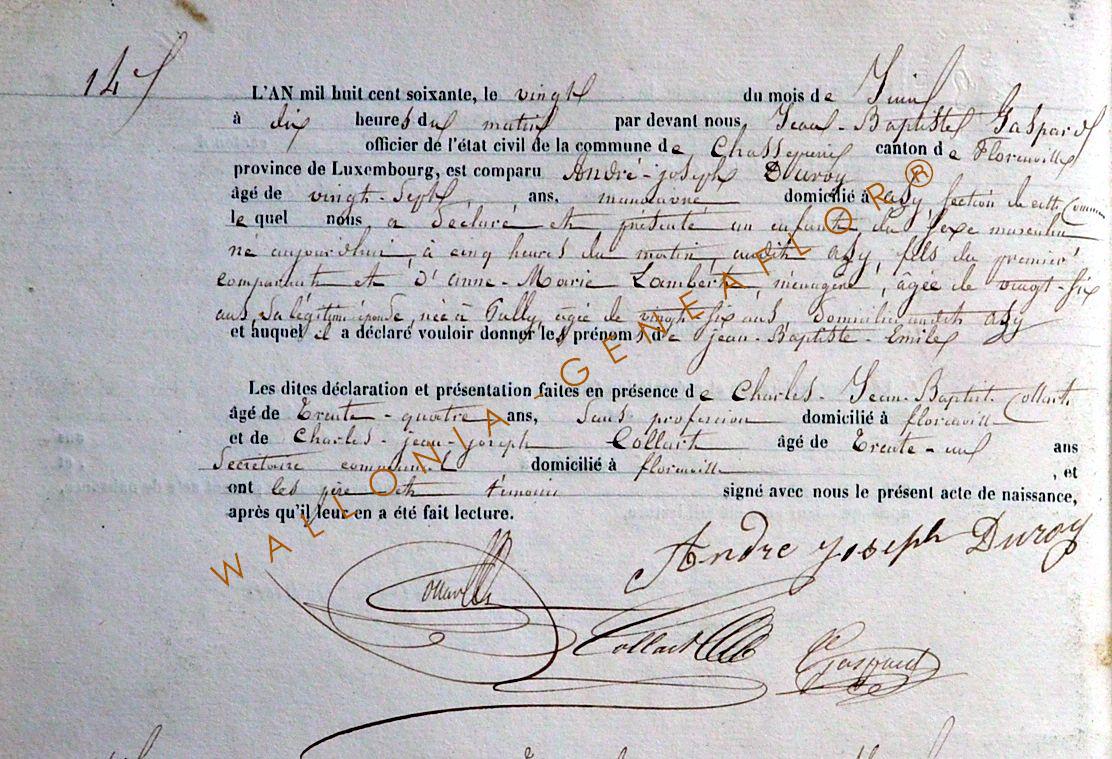 14
L'AN mil huit cent soixante, le vingt du mois de Juin
à dix heures du matin par devant nous, Jean-Baptiste Gaspard
officier de l'état civil de la commune de Chassepierre canton de Florenville
province de Luxembourg, est comparu André-joseph Duroy
âgé de vingt-sept, ans, manœuvre domicilié à asy, section de cette Commune
le quel nous a déclaré et présenté un enfant du sexe masculin
né aujourd'hui, à cinq heures du matin, audit asy, fils du premier
comparant et d'anne-Marie Lambert, ménagère, âgée de vingt-six
ans, sa légitime épouse, née à agée de vingt six ans domiciliée audit asy
et auquel il a déclaré vouloir donner les prénoms de jean-Baptiste-Emile
Les dites déclaration et présentation faites en présence de Charles-Jean-Baptiste Collart
âgé de Trente-quatre ans, sans profession domicilié à florenville
et de Charles-jean-joseph Collart âgé de Trente-un ans
Secrétaire communal domicilié à florenville, et
ont les père et témoins signé avec nous le présent acte de naissance,
après qu'il leur en a été fait lecture.
Andre Joseph Duroy
Collart
Collart
Gaspard
WALLONIA-GENEAFLOR®